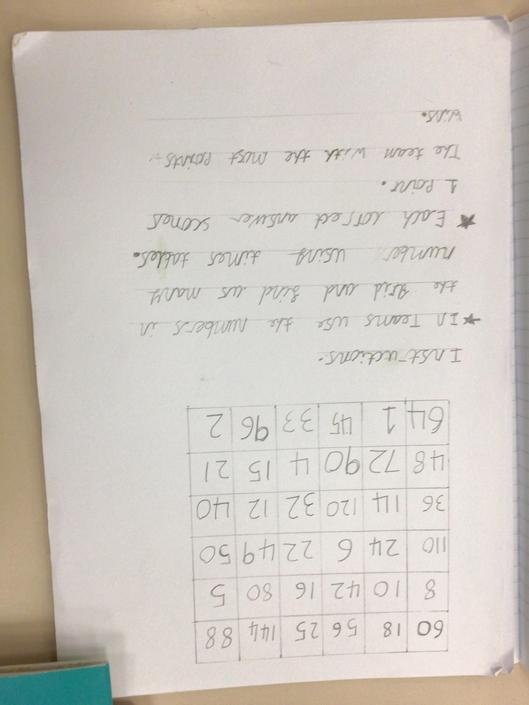 60 18 56 25 144 88
8 10 42 16 80 5
110 24 6 22 49 50
36 14 120 32 12 40
48 72 90 4 15 21
64 1 45 33 96 2
Instructions.
★ In Teams use the numbers in
the grid and find as many
number using times tables.
★ Each correct answer scores
1 Point.
The team with the most points
wins.